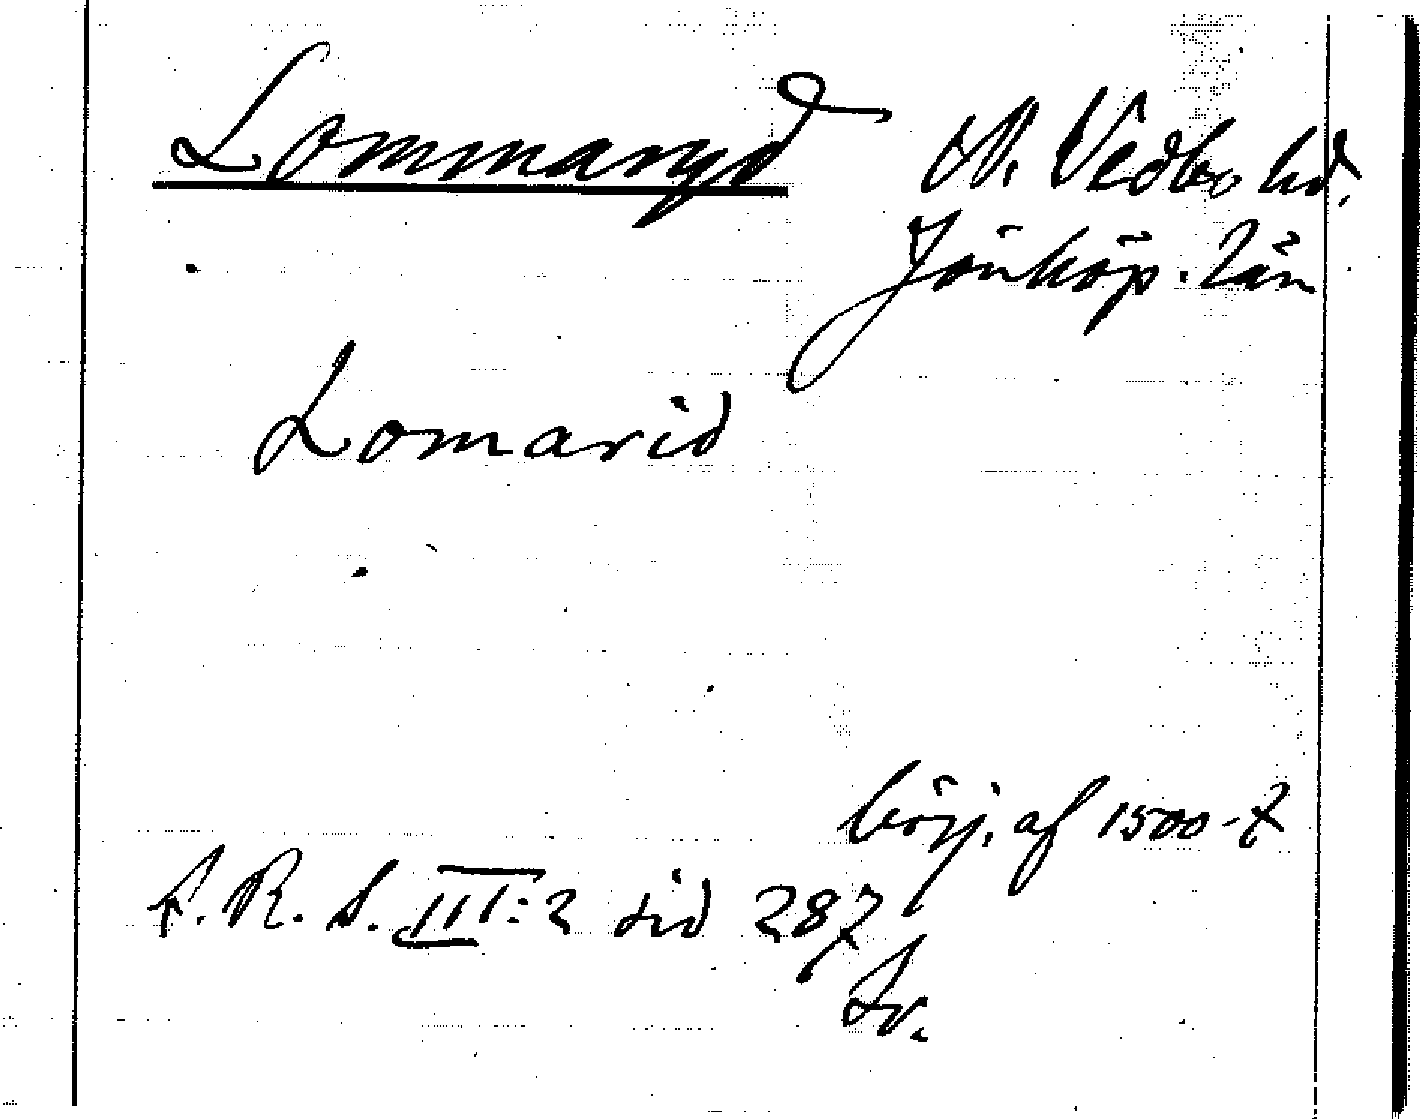 Lommaryd N. Vedbo hd.
Jönköp. län
Lomarid
börj. af 1500-t
F. R. S. III:2 sid 287
Sv.